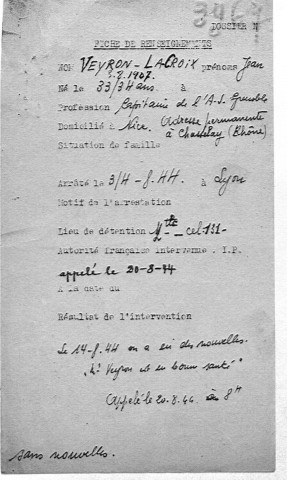 DOSSIER N
FICHE DE RENSEIGNEMENTS
NOM VEYRON-LACROIX prénoms Jean
Né le 33/34 ans. à
Profession Capitaine de l'A.S. Grenoble
Domicilié à Nice. Adresse permanente
à Chasselay (Rhône)
Situation de famille
Arrêté le 3/4-8-44 à Lyon
Motif de l'arrestation
Lieu de détention Mtc cel-131-
Autorité française intervenue . I.P.
appelé le 20-8-44
A la date du
Résultat de l'intervention
Le 14-8-44 on a eu des nouvelles.
"Mr Veyron est en bonne santé"
Appelé le 20.8.44 à 8H
sans nouvelles.